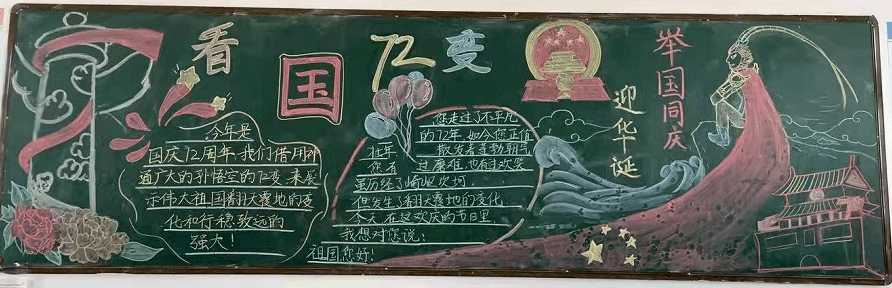 看国72变
举国同庆
迎华诞
今年是
国庆72周年,我们借用神
通广大的孙悟空的72变,来展
示伟大祖国翻天覆地的变
化和行稳致远的
强大!
您走过了不平凡
的72年,如今您正值
壮年,散发着蓬勃朝气
您有过屈辱,也有过欢笑
虽历经了崎岖坎坷,
但发生了翻天覆地的变化,
今天,在这欢庆的节日里,
我想对您说:
祖国您好!